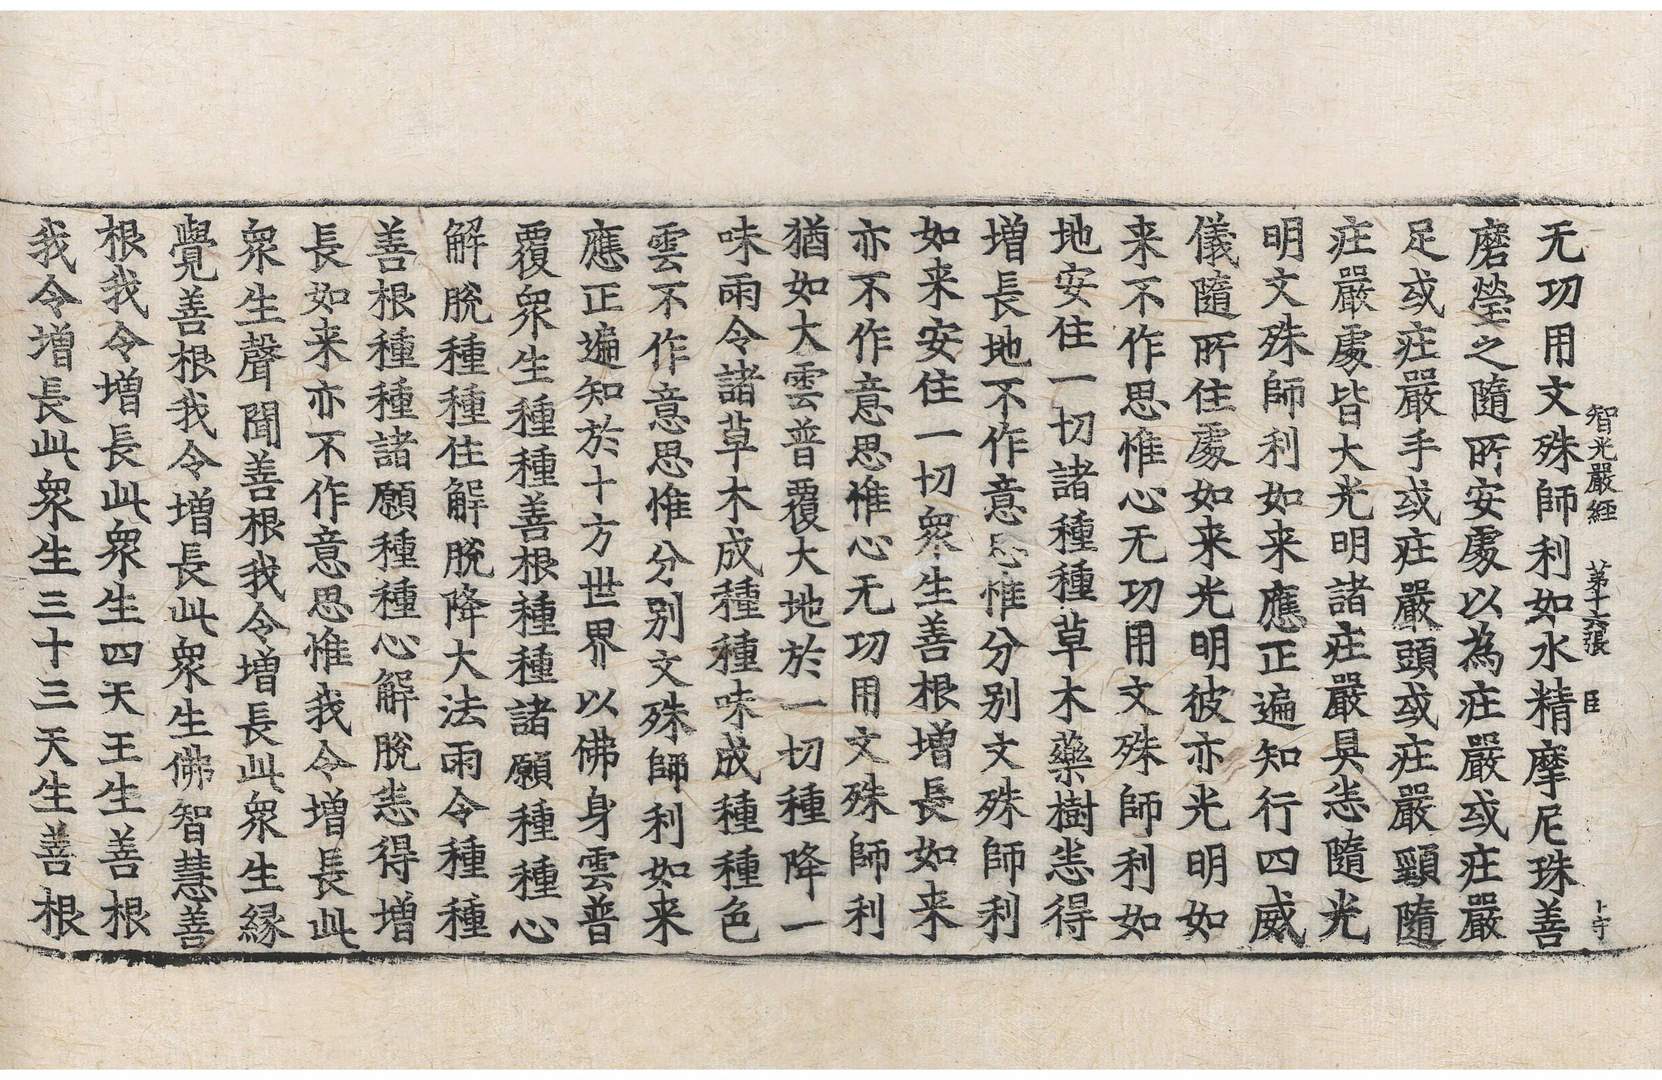 智光嚴經 第十六張 臣 卜守
无功用文殊師利如水精摩尼珠善
磨瑩之隨所安處以為莊嚴或莊嚴
足或莊嚴手或莊嚴頭或莊嚴頸隨
莊嚴處皆大光明諸莊嚴具悉隨光
明文殊師利如来應正遍知行四威
儀隨所住處如来光明彼亦光明如
来不作思惟心无功用文殊師利如
地安住一切諸種種草木藥樹悉得
増長地不作意思惟分別文殊師利
如来安住一切衆生善根増長如来
亦不作意思惟心无功用文殊師利
猶如大雲普覆大地於一切種降一
味雨令諸草木成種種味成種種色
雲不作意思惟分別文殊師利如来
應正遍知於十方世界以佛身雲普
覆衆生種種善根種種諸願種種心
解脫種種住解脫降大法雨令種種
善根種種諸願種種心解脫悉得増
長如来亦不作意思惟我令増長此
衆生聲聞善根我令増長此衆生緣
覺善根我令増長此衆生佛智慧善
根我令増長此衆生四天王生善根
我令増長此衆生三十三天生善根